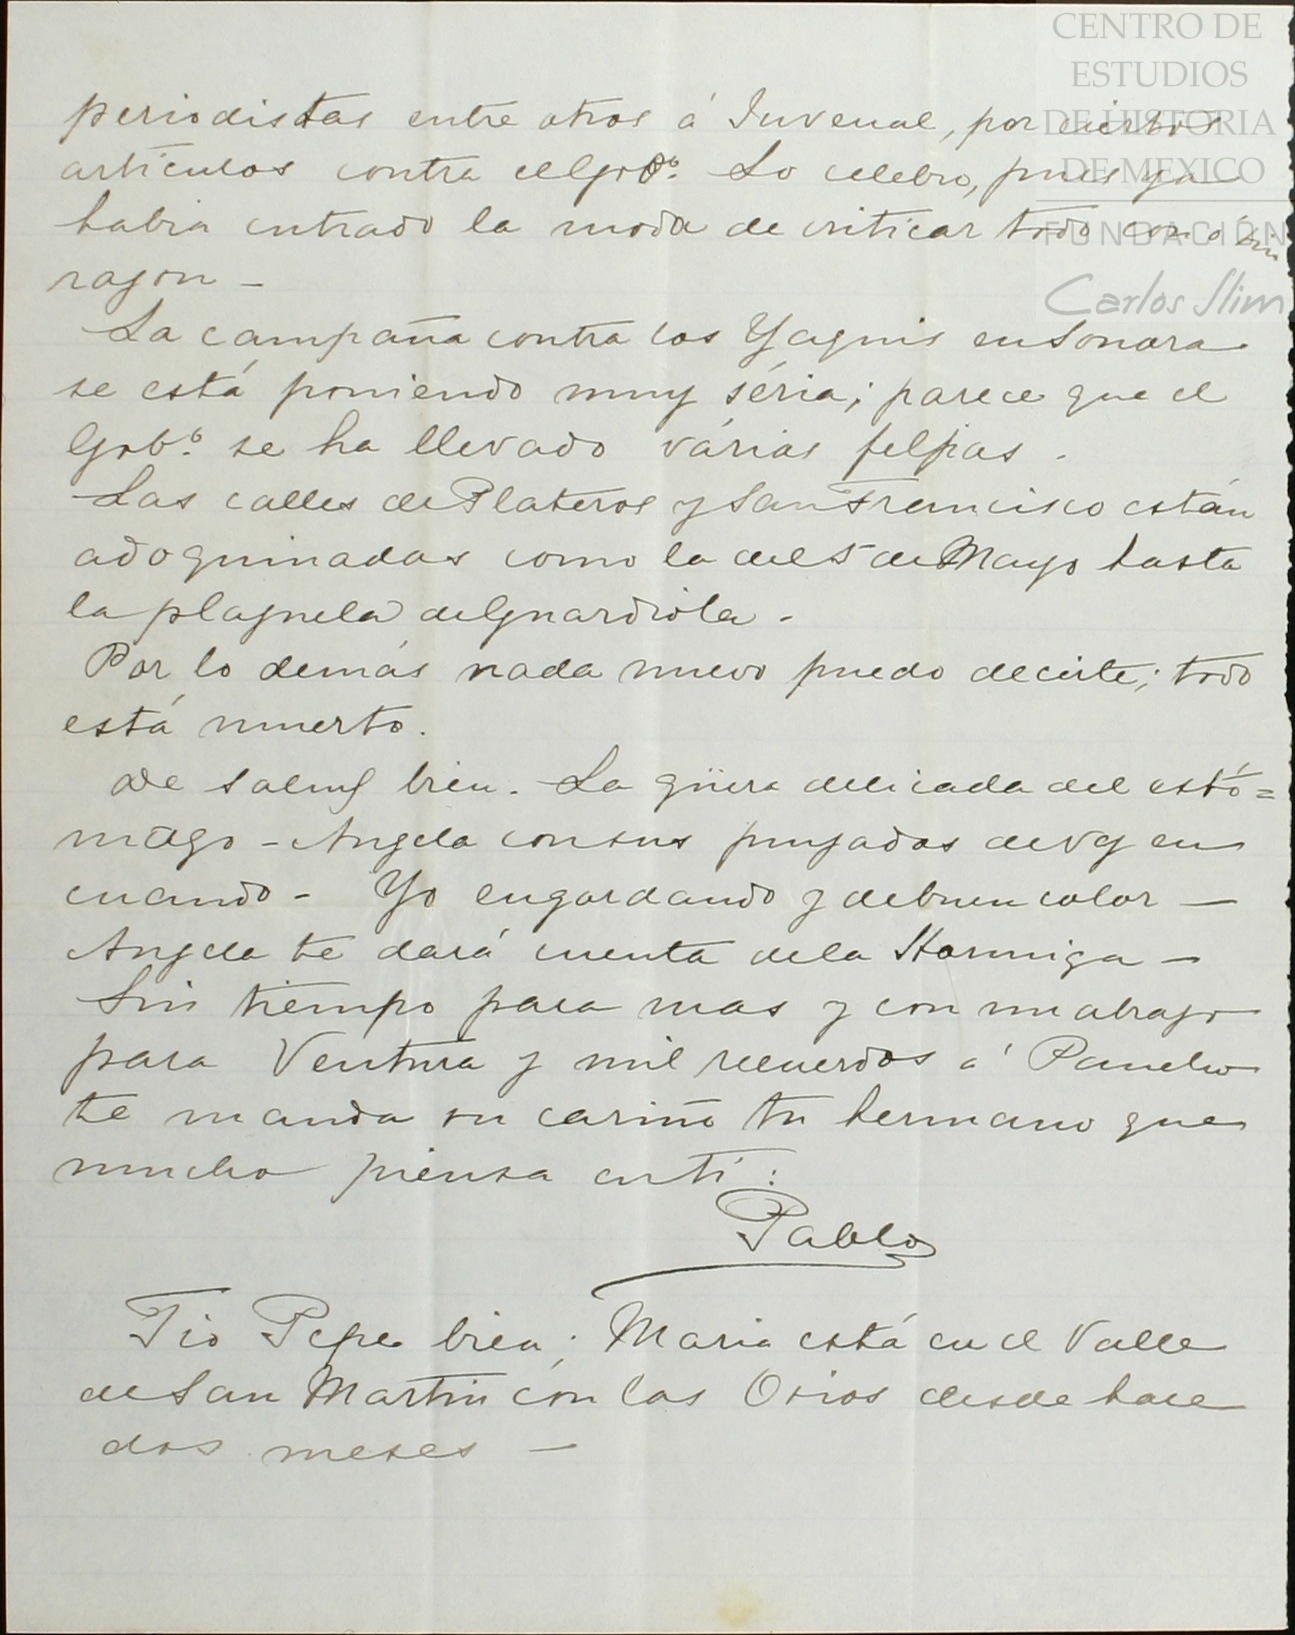 CENTRO DE
ESTUDIOS
DE HISTORIA
DE MEXICO
FUNDACIÓN
Carlos Slim
periodistas entre otros á Juvenal, por ciertos
artículos contra el Gobº. Lo celebro, pues ya
habia entrado la moda de criticar todo con ó sin
razon _
La campaña contra los Yaquis en Sonora
se está poniendo muy séria; parece que el
Gobº. se ha llevado várias felpas .
Las calles de Plateros y San Francisco están
adoquinadas como la del 5 de Mayo hasta
la plazuela de Guardiola .
Por lo demás nada nuevo puedo decirte; todo
está muerto.
De salud bien. La güera delicada del estó=
mago - Angela con sus punzadas de vez en
cuando - Yo engordando y de buen color —
Angela te dará cuenta de la Hormiga —
Sin tiempo para mas y con un abrazo
para Ventura y mil recuerdos á Pancho
te manda su cariño tu hermano que
mucho piensa en tí :
Pablo
Tio Pepe bien ; Maria está en el Valle
de San Martin con los Osios desde hace
dos meses —